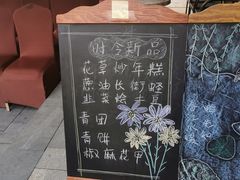 时令新品
花草炒年糕
葱油长街蛏
韭菜烩土豆
青田
青饼
椒麻花甲